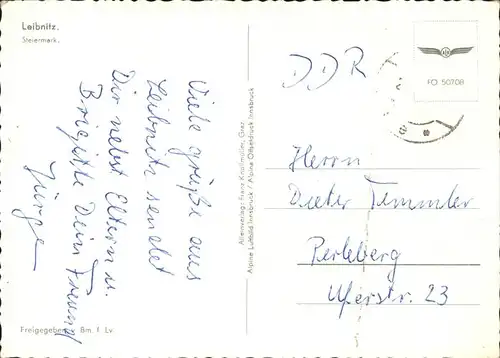 Leibnitz.
Steiermark.
Viele Grüße aus
Leibnitz sendet
Dir nebst Eltern u.
Brigitte Dein Freund
Jürgen
Freigegeben Bm. f. Lv.
Alleinverlag: Franz Knollmüller, Graz
Alpine Luftbild Innsbruck / Alpine Offsetdruck Innsbruck
DDR
FO 50708
Herrn
Dieter Temmler
Perleberg
Uferstr. 23